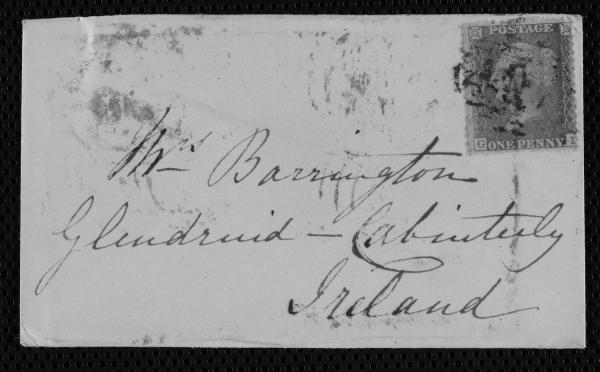 POSTAGE
G I
ONE PENNY
Mrs Barrington
Glendruid – Cabinteely
Ireland